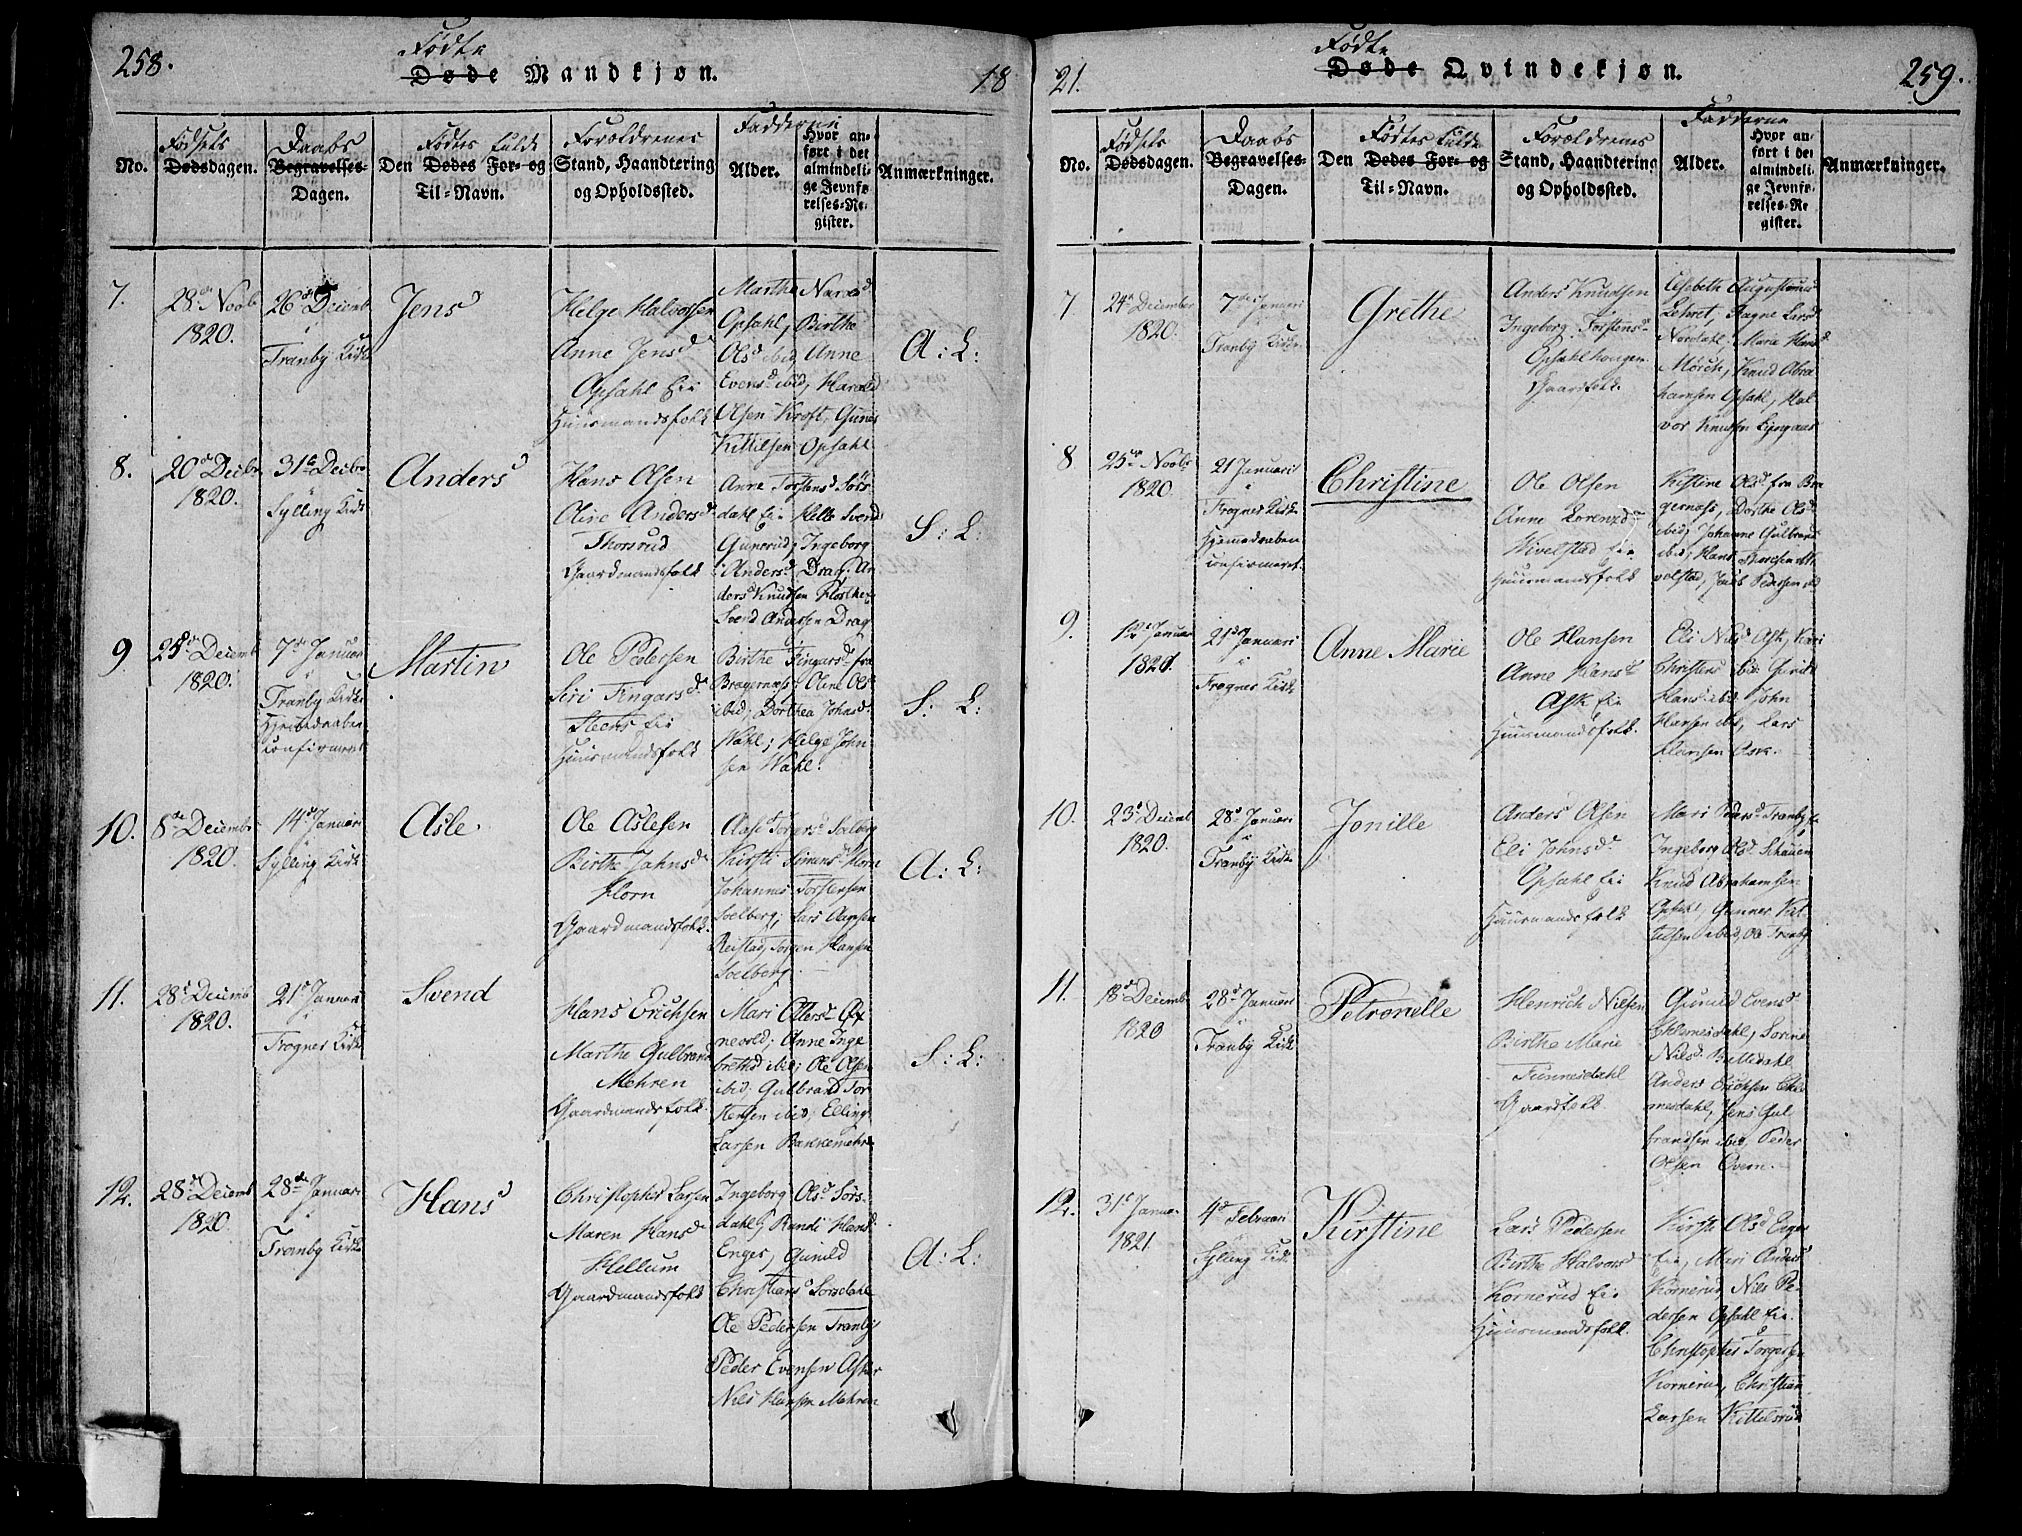 258.
Fødte
Døde Mandkjøn.
18
Fødsels
Daabs
Fødtes fulde
Forældrenes
Fadderne
No.
Dødsdagen.
Begravelses-
Dagen.
Den Dødes For- og
Til-Navn.
Stand, Haandtering
og Opholdssted.
Alder.
Hvor an-
ført i det
almindeli-
ge Jevnfø-
relses-Re-
gister.
Anmærkninger.
7.
28de Novbr
1820.
26de Decemb
Tranby Kirke
Jens
Helge Halvorsen
Anne Jensd
Opsahl Eie
Huusmandsfolk
Marthe
Opsahl, Birthe
Olsd ibid, Anne
Evensd ibid, Harald
Olsen Kroft, Gunner
Kittilsen Opsahl
A: L:
8.
20de Decbr
1820.
31te Decbr
Sylling Kirke
Anders
Hans Olsen
Oline Andersd
Thorsrud
Gaardmandsfolk
Anne Torstensd Sørs-
dahl Eie Helle Svend
Gunerud; Ingeborg
Andersd Drag: An-
ders Knudsen
Svend Andersen Drag
S: L:
9
25de Decemb
1820.
7de Januar
Tranby Kirke
Hjemmedaaben
confirmeret
Martin
Ole Pedersen
Siri Fingarsd
Steens Eie
Huusmandsfolk
Birthe Fingarsd fra
Bragernæss; Oline Olsd
ibid, Dorthea Johnsd
Wahl; Helge John-
sen Wahl.
S: L:
10.
8de Decembr
1820.
14d Januari
Sylling Kirke
Asle
Ole Aslesen
Birthe Jahnsd
Horn
Gaardmandsfolk.
Aase Torgersd Solberg
Kirsti Simensd Horn
Johannes Torstensen
Soelberg; Lars
Reistad, Torgen Hansen
Soelberg.
A: L:
11.
28d Decemb
1820.
21d Januari
Frogner Kirke
Svend
Hans Erichsen
Marthe Gulbrand
Mehren
Gaardmandsfolk.
Mari
Anne Inge
brettsd ibid; Ole Olsen
ibid; Gulbrand Tor-
stensen ibid; Elling
Larsen Bankemehren
S: L:
12.
28d Decemb
1820
28de Januari
Tranby Kirke
Hans
Christopher Larsen
Maren Hansd
Hellum
Gaardmandsfolk
Ingeborg Olsd Sørs-
dahl; Randi Hansd
Enger, Gunild
Christians Sorsdahl
Ole Pedersen Tranby
Peder Evensen Asker
Nils Hansen Mehren
A: L:
21.
Fødte
Døde Qvindekjøn.
259.
Fødsels
Daabs
Fødtes fulde
Forældrenes
Fadderne
No.
Dødsdagen.
Begravelses-
Dagen.
Den Dødes For- og
Til-Navn.
Stand, Haandtering
og Opholdssted.
Alder.
Hvor an-
ført i det
almindeli-
ge Jevnfø-
relses-Re-
gister.
Anmærkninger.
7
24de December
1820.
7de Januari
Tranby Kirke
Grethe
Anders Knudsen
Ingeborg Torstensd
Opsahlhougen
Gaardfolk
Lisebeth
Lars
Nordahl, Marie Hansd
Mörch, Knud Abra
hamsen Opsahl, Hal
vor Knudsen
8
25de Novbr
1820.
21 Januari
Frogner Kirke
Hjemedaaben
confirmeret.
Christine
Ole Olsen
Anne Lorenzd
Wivelstad Eie
Huusmandsfolk
Kistine Olsd fra Bra
gernass, Dorthe Olsd
ibid, Johanne Gulbrand
ibid, Hans Thorsen Wi
velstad, Jacob Pedersen ibid
9.
12 Januar
1821.
21d Januari
Frogner Kirke
Anne Marie
Ole Hansen
Anne Hansd
Ask Eie
Huusmandsfolk.
Eli Nilsd Ask, Kari
Christens ibid
Hansd ibid John
Hansen ibid, Lars
Hansen Ask.
10.
23d Decemb
1820.
28d Januari
Tranby Kirke
Jonille
Anders Olsen
Eli Johnsd
Opsahl Eie
Huusmandsfolk
Mari Tranby
Ingeborg Olsd
Knud Abrahamsen
Opsahl, Gunner Kit-
tilsen ibid, Ole Tranby
11.
18d Decemb
1820
28d Januari
Tranby Kirke
Petronelle
Henrich Nielsen
Birthe Marie
Gaardfolk
Gunild Evensd
Sorine
Nilsd
Anders Erichsen
Jens Gul
brandsen ibid, Peder
Olsen Overn.
12.
31te Januar
1821.
4d Februari
Sylling Kirke
Kirstine
Lars Pedersen
Birthe Halvorsd
Kornerud Eie
Huusmandsfolk.
Kirsti Olsd Enger
Eie, Mari Andersd
Kornerud, Nils Pe-
dersen Opsahl Eie.
Christopher Torgersen
Kornerud, Christian
Larsen Kittelsrud